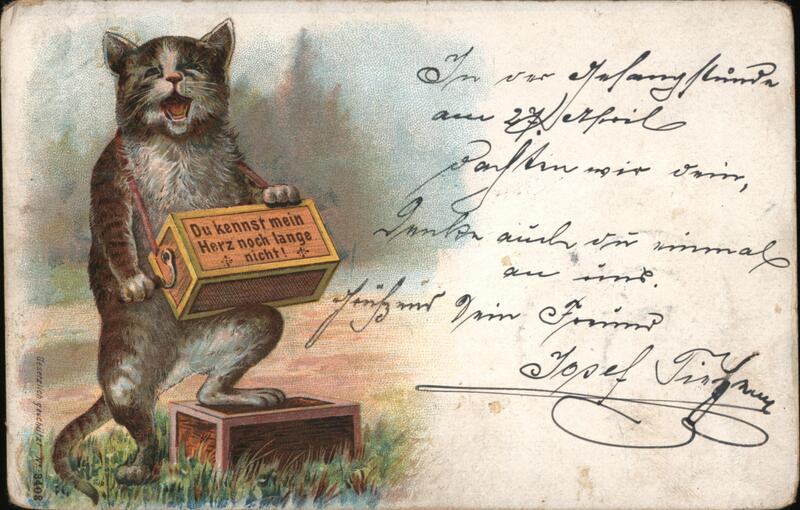 Du kennst mein
Herz noch lange
nicht!
In der Gesangstunde
am 27. April
dachten wir dein,
Denke auch du einmal
an uns.
Grüßend Dein Freund
Josef
Gesetzlich geschützt Nr. 8408